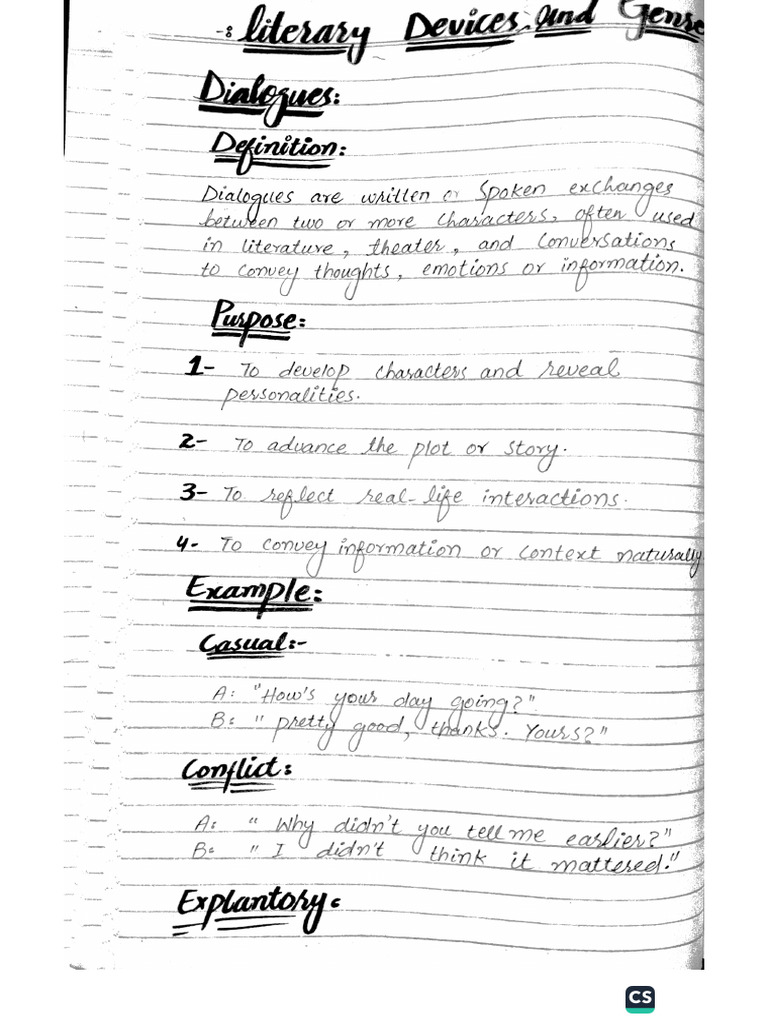 -: Literary Devices and Genre
Dialogues:
Definition:
Dialogues are written or Spoken exchanges
between two or more characters, often used
in literature, theater, and conversations
to convey thoughts, emotions or information.
Purpose:
1- To develop characters and reveal
personalities.
2- To advance the plot or story.
3- To reflect real-life interactions.
4- To convey information or context naturally
Example:
Casual:-
A: "How's your day going?"
B: "pretty good, thanks. Yours?"
Conflict:
A: "Why didn't you tell me earlier?"
B: "I didn't think it mattered."
Explantory:
CS